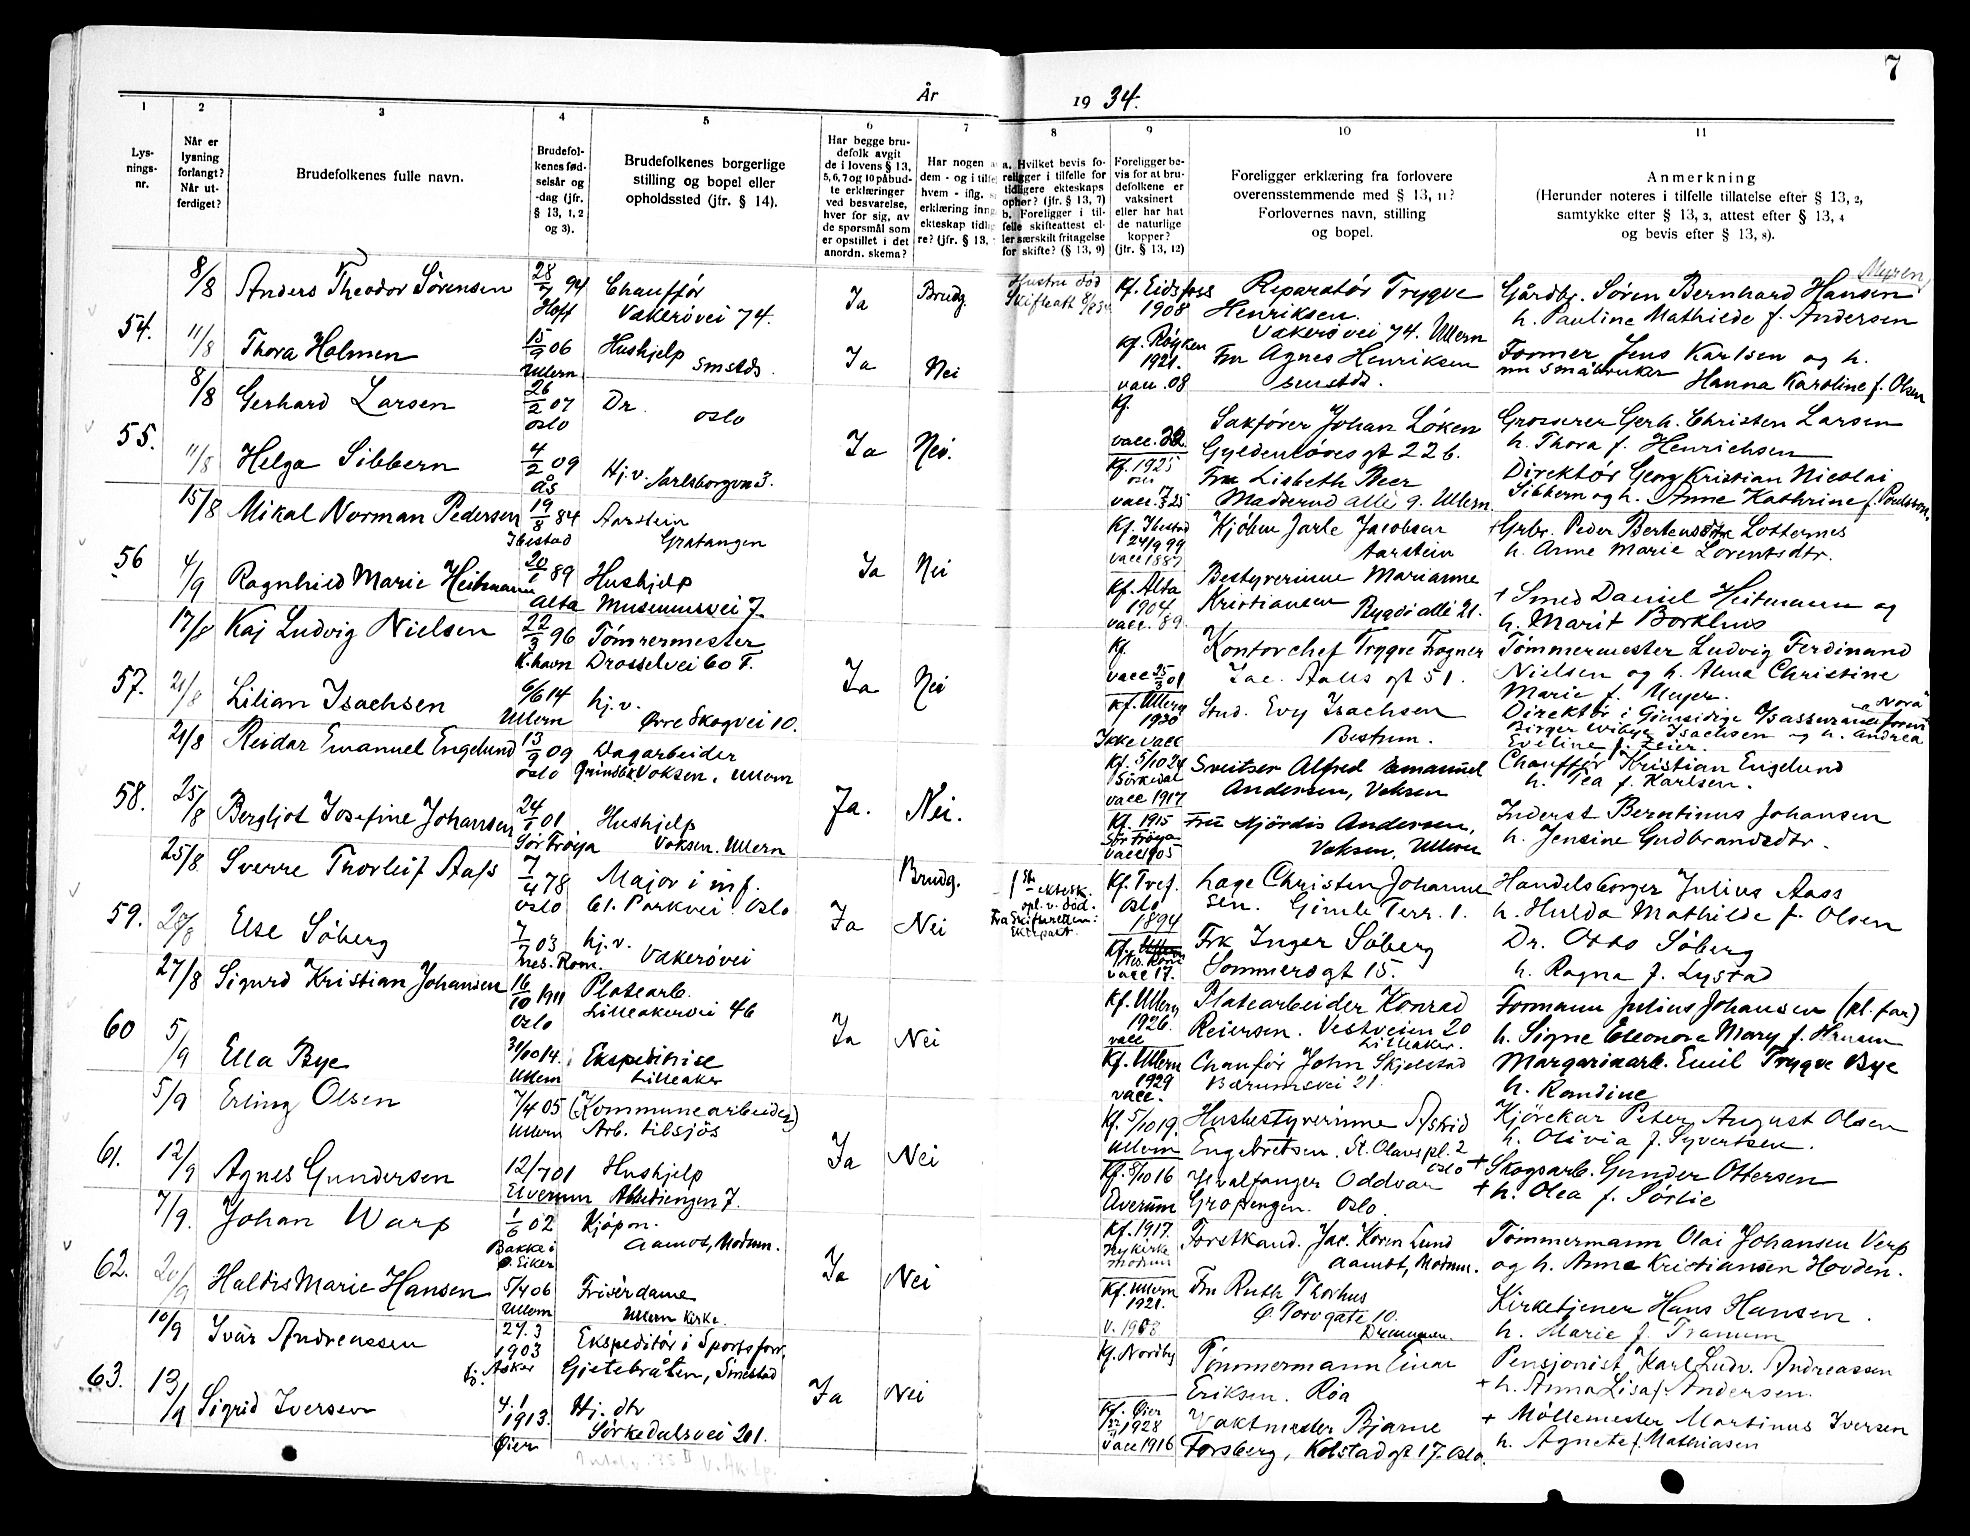 7
År 1934.
1 2 3 4 5 6 7 8 9 10 11
Lysningsnr.
Når er lysning forlangt? Når utferdiget?
Brudefolkenes fulle navn.
Brudefolkenes fødselsår og -dag (jfr. § 13, 1, 2 og 3).
Brudefolkenes borgerlige stilling og bopel eller opholdssted (jfr. § 14).
Har begge brudefolk avgit de i lovens § 13, 5, 6, 7 og 10 påbudte erklæringer ved besvarelse, hver for sig, av de spørsmål som er opstillet i det anordn. skema?
Har nogen a
dem - og i tilfe
hvem - iflg. s
erklæring inng
ekteskap tidlig
re? (jfr. § 13,
a. Hvilket bevis foreligger i tilfelle for tidligere ekteskaps ophør? (jfr. § 13, 7)
b. Foreligger i tilfelle skifteattest eller særskilt fritagelse for skifte? (§ 13, 9)
Foreligger bevis for at brudefolkene er vaksinert eller har hat de naturlige kopper? (jfr. § 13, 12)
Foreligger erklæring fra forlovere overensstemmende med § 13, 11? Forlovernes navn, stilling og bopel.
Anmerkning
(Herunder noteres i tilfelle tillatelse efter § 13, 2, samtykke efter § 13, 3, attest efter § 13, 4 og bevis efter § 13, 8).
54.
8/8 Anders Theodor Sørensen 28/7 94 Hoff Chauffør Vækerøvei 74. Ja Brudg Hustru død Skifteatt Kf. Eidsfoss 1908 Reparatør Trygve Henriksen. Vækerøvei 74. Ullern Gårdbr. Søren Bernhard Hansen Myren h. Pauline Mathilde f. Andersen
11/8 Thora Holmen 15/9 06 Ullern Hushjelp smstds. Ja Nei Kf. Røyken 1921. vacc. 08 Fru Agnes Henriksen smstds. Former Jens Karlsen og h. nu småbruker Hanna Karoline f. Olsen
55.
8/8 Gerhard Larsen 26/2 07 oslo Dr. oslo Kf. vacc. Sakfører Johan Løken Gyldenløves gt 22 b. Grosserer Gerh. Christen Larsen h. Thora f. Henrichsen
11/8 Helga Sibbern 4/2 09 Ås Hj.v. Jarlsborgvn 3. Ja Nei. Kf. 1925 Fru Lisbeth Neer Madserud alle 9. Ullern Direktør Georg Kristian Nicolai Sibbern og h. Anne Kathrine f. Poulsson
56
15/8 Mikal Norman Pedersen 19/8 84 Ibestad Aarstein Gratangen Kf. Ibestad 24/9 99 vacc 1887 Kjøbm Jarle Jacobsen Aarstein + Grbr. Peder Bertensen Lotternes h. Anne Marie Lorentsdtr.
4/9 Ragnhild Marie Heitmann 20/1 89 Alta Hushjelp Museumsvei 7. Ja Nei Kf. Alta 1904 vacc. 89. Bestyrerinne Marianne Kristiansen Bygdø allé 21. + Smed Daniel Heitmann og h. Marit Borkhus
57.
17/8 Kaj Ludvig Nielsen 22/3 96 K.havn Tømrermester Drosselvei 60 F. Kf. vacc 25/3 01 Kontorchef Trygve Fogner Jac. Aalls gt 51. Tømmermester Ludvig Ferdinand Nielsen og h. Alma Christine Marie f. Meyer.
21/8 Lilian Isachsen 6/6 14 Ullern hj.v. Øvre Skogvei 10. Ja Nei Kf. Ullern 1930 Ikke vacc Stud. Evy Isachsen Bestum. Direktør i Gjensidige Assuranseforen „Nora" Birger Wibye Isachsen og h. Andrea Eveline f. Zeier.
58.
21/8 Reidar Emanuel Engelund 13/9 09 oslo Dagarbeider Voksen, Ullern Kf. 5/10 24 Sørkedal vacc 1917 Sveitser Alfred Emanuel Andersen, Voksen Chauffør Kristian Engelund h. Tea f. Karlsen.
25/8 Bergljot Josefine Johansen 24/1 01 Sør Frøya Hushjelp Voksen. Ullern Ja. Nei. Kf. 1915 Sør Frøya vacc 1905 Fru Hjördis Andersen, Voksen, Ullern Inderst Berntinus Johansen h. Jensine Gudbrandsdtr.
59.
25/8. Sverre Thorleif Aass 7/4 78 oslo Major i inf. Gl. Parkvei. Oslo Brudg. 1ste ektesk. opl. v. død. Kf. Tref. oslo 1894 Lage Christen Johannesen. Gimle Terr. 1. Handelsborger Julius Aass h. Hulda Mathilde f. Olsen
28/8 Else Söberg 7/7 03 Nes. Rom. hj.v. Vækerövei Ja Nei Kf. Nes. Rom. vacc 17. Frk Inger Söberg Sommerogt 15. Dr. Otto Söberg h. Ragna f. Lystad
60
27/8 Sigurd Kristian Johansen 16/10 1911 Oslo Platearb. Lilleakervei 46 Kf. Ullern 1926. vacc Platearbeider Konrad Reiersen. Vestveien 20 Lilleaker. Formann Julius Johansen (pl. far) h. Signe Eleonora Mary f. Hansen
5/9 Ella Bye 31/10 14. Ullern Ekspeditrise Lilleaker Ja Nei Kf. Ullern 1929 vacc. Chauför John Skjelstad Bærumsvei 21. Margarinarb. Emil Trygve Bye h. Randine
61.
5/9 Erling Olsen 7/4 05 Ullern (Kommunearbeider) Arb. tilsjös Kf. 5/10 19. Ullern Husbestyrerinne Astrid Engebretsen. St. Olavs pl. 2 oslo Kjörekar Peter August Olsen h. Olivia f. Syvertsen.
12/9 Agnes Gundersen 12/7 01 Elverum Hushjelp Abbediengen 7. Ja Nei Kf. 8/10 16 Elverum Hvalfanger Oddvar Gropengen. Oslo. + Skogsarb. Gunder Ottersen + h. Olea f. Sörlie
62.
7/9. Johan Warp 1/6 02 Bakke i Ø. Eiker Kjöpm. Aamot, Modum. Kf. 1917. Nykirke Modum Forstkand. Jac. Koren Lund Aamot, Modum. Tömmermann Olai Johansen Verp og h. Anne Kristiansen Hovden.
20/9 Haldis Marie Hansen 5/4 06 Ullern Frisördame Ullern Kirke. Ja Nei Kf. Ullern 1921. v. 1908 Fru Ruth Thorhus Ø. Torvgate 10. Drammen. Kirketjener Hans Hansen. h. Marie f. Tranum
63.
10/9 Ivar Andreassen 27.3 1903 Asker Ekspeditör i Sportsforr. Gjetebråten, Smestad Kf. Nordby Tömmermann Einar Eriksen. Röa Pensjonist Karl Ludv. Andreassen + h. Anna Lisa f. Andersen.
13/9 Sigrid Iversen 4.1 1913. Øier Hj. dtr Sørkedalsvei 201. Ja Nei Kf. Øier 1928 vacc 1916 Vaktmester Bjarne Forsberg, Kolstadgt 17. Oslo. + Möllemester Martinus Iversen h. Agnete f. Mathiasen